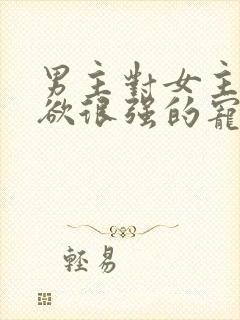 男主對女主
欲很强的寵
輕易